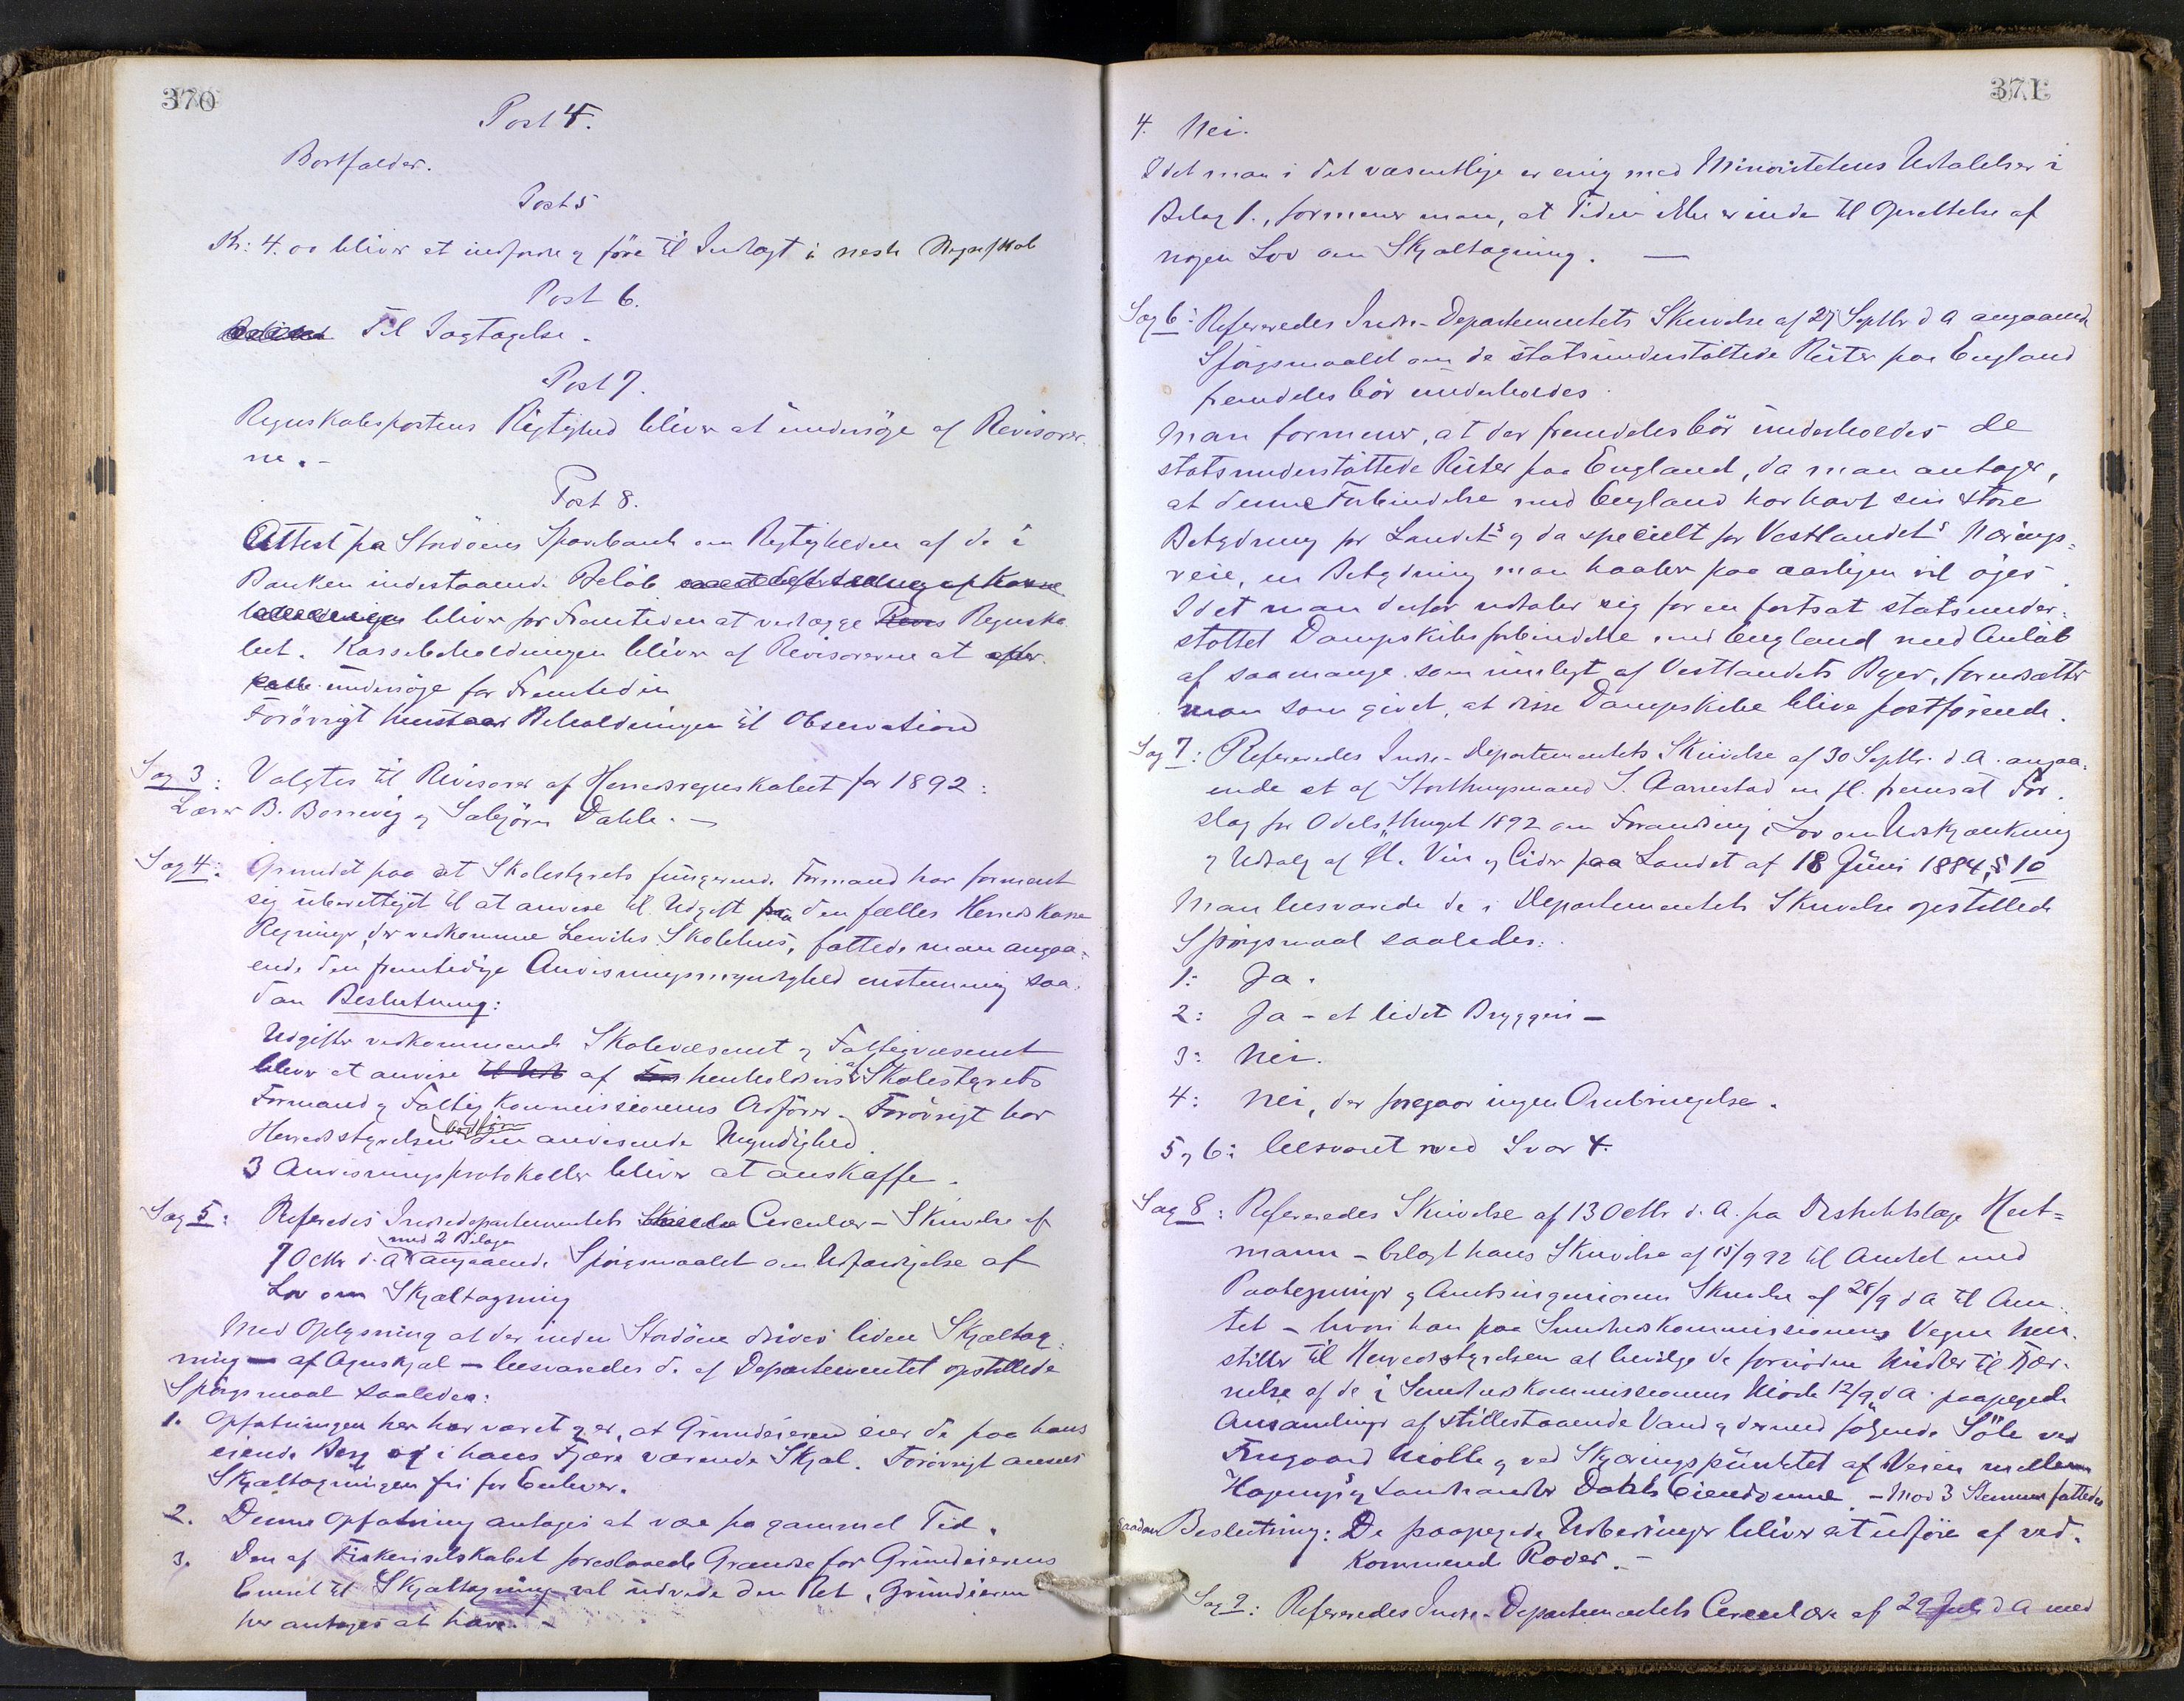 370
Post 4.
Bortfalder.
Post 5
Kr: 4.00 bliver at indfordre & føre til Indtægt i neste Regnskab
Post 6.
Til Iagtagelse.
Post 7.
Regnskabspostens Rigtighed bliver at undersöge af Revisorer-
ne. -
Post 8.
Attest fra Stordöens Sparebank om Rigtigheden af de i
Banken indestaaende Belöb
bliver for Fremtiden at vedlægge Regnska-
bet. Kassebeholdningen bliver af Revisorerne at
undersöge for Fremtiden
Forövrigt henstaar Beholdningen til Observation
Sag 3: Valgtes til Revisorer af Herredsregnskabet for 1892:
Lærer B. Borrevig & Dahle. -
Sag 4: Grundet paa at Skolestyrets fungerende Formand har forment
sig uberettiget til at anvise til Udgift fra den fælles Herredskasse
Regninger, der vedkomme Lerviks Skolehus, fattede man angaa-
ende den fremtidige Anvisningsmyndighed enstemmig saa-
dan Beslutning:
Udgifter vedkommende Skolevæsenet & Fattigvæsenet
bliver at anvise af henholdsvis af Skolestyrets
Formand & Fattigkommissionens Ordfører. Forövrigt har
Herredsstyrelsen ordförer den anvisende Myndighed.
3 Anvisningsprotokoller bliver at anskaffe.
Sag 5: Referedes Indredepartementets Circulær-Skrivelse af
7 Octbr d. A. med 2 Bilage angaaende Spörgsmaalet om Udfærdigelse af
Lov om Skjæltagning
Med Oplysning at der inden Stordöen drives liden Skjæltag-
ning - af Agnskjæl - besvaredes de af Departementet opstillede
Spörgsmaal saaledes:
1. Opfatningen her har været & er, at Grundeieren eier de paa hans
eiende Berg og i hans Fjære værende Skjæl. Forövrigt ansees
Skjæltagningen fri for Enhver.
2. Denne Opfatning antages at være fra gammel Tid.
3. Den af Fiskeriselskabet foreslaaede Grændse for Grundeierens
Eneret til Skjæltagning vil udvide den Ret, Grundeieren
her antages at have. -
371
4. Nei.
Idet man i det væsentlige er enig med Minoritetens Udtalelser i
Bilag 1., formener man, at Tiden ikke er inde til Oprettelse af
nogen Lov om Skjæltagning. -
Sag 6: Refereredes Indre-Departementets Skrivelse af 27 Septbr d A angaaende
Spörgsmaalet om de statsunderstöttede Ruter paa England
fremdeles bör underholdes.
Man formener, at der fremdeles bör underholdes de
statsunderstöttede Ruter paa England, da man antager,
at denne Forbindelse med England har havt sin store
Betydning for Landets & da specielt for Vestlandets Nærings-
veie, en Betydning man haaber paa aarligen vil öges.
Idet man derfor udtaler sig for en fortsat statsunder-
støttet Dampskibsforbindelse med England med Anlöb
af saamange som muligt af Vestlandets Byer, forudsætter
man som givet, at disse Dampskibe blive postförende.
Sag 7: Refereredes Indre-Departementets Skrivelse af 30 Septbr. d. A. angaa-
ende et af Storthingsmand S. Aarrestad m fl. fremsat For-
slag for Odelsthinget 1892 om Forandring i Lov om Udskjænkning
& Udsalg af Öl, Vin & Cider paa Landet af 18 Juni 1884, § 10
Man besvarede de i Departementets Skrivelse opstillede
Spörgsmaal saaledes:
1: Ja.
2: Ja - et lidet Bryggeri -
3: Nei.
4: Nei, der foregaar ingen Ombringelse.
5 & 6: besvaret ved Svar 4.
Sag 8: Refereredes Skrivelse af 13 Octbr d. A. fra Distriktslæge
mann - bilagt hans Skrivelse af 15/9 92 til Amtet med
Paategninger & Amtsingeniörens Skrivelse af 28/9 d A til Am-
tet - hvori han paa Sundhedskommissionens Vegne hen-
stiller til Herredsstyrelsen at bevilge de fornödne Midler til Fjer-
nelse af de i Sundhedskommissionens Möde 12/9 d A. paapegede
Ansamlinger af stillestaaende Vand & dermed fölgende Söle ved
Mölle & ved Skjæringspunktet af Veien mellem
& Landhandler Dahls Eiendomme. - Mod 3 Stemmer fattedes
saadan Beslutning: De paapegede Udbedringer bliver at udföre af ved-
kommende Roder. -
Sag 9: Refereredes Indre-Departementets Circulære af 29 Juli d A med